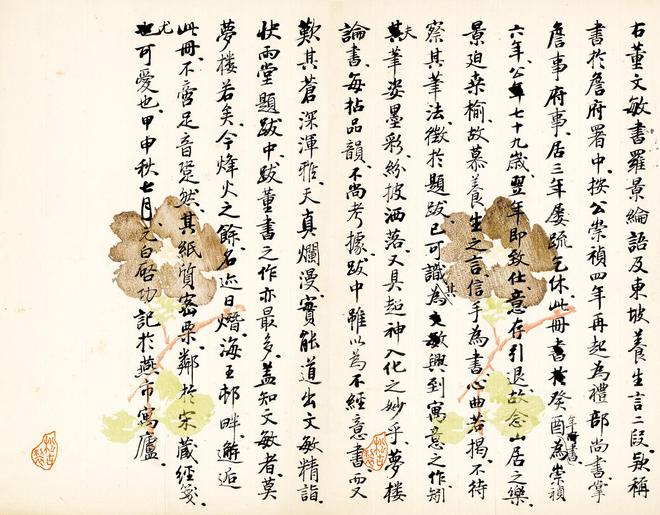 右董文敏書羅景綸語及東坡養生言二段款稱
書於詹府署中按公崇禎四年再起為禮部尚書掌
詹事府事居三年屢疏乞休此冊書於癸酉年時書為崇禎
六年公年七十九歲翌年即致仕意存引退故念山居之樂
景迫桑榆故慕養生之言信手為書心曲若揭不待
察其筆法徵於題跋已可識為文敏興到寓意之作矧
其夫筆姿墨彩紛披洒落又具超神入化之妙乎夢樓
論書每拈品韻不尚考據跋中雖以為不經意書而又
歎其蒼深渾雅天真爛漫實能道出文敏精詣
快雨堂題跋中跋董書之作亦最多蓋知文敏者莫
夢樓若矣今烽火之餘名迹日熸海王邨畔邂逅
此冊不啻足音跫然其紙質密栗鄰於宋藏經箋
尤可愛也甲申秋七月元白啓功記於燕市寓廬